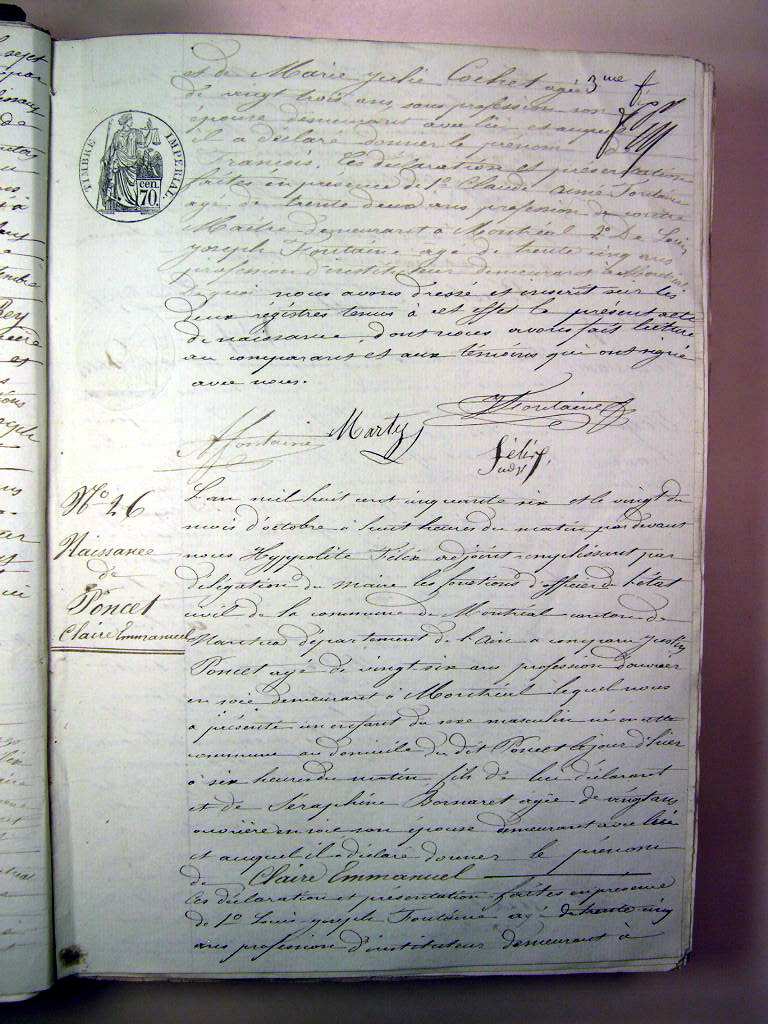 et de Marie Julie Cochet agée
de vingt trois ans, sans profession son
épouse demeurant avec lui, et auquel
il a déclaré donner le prénom de
François. Ces déclaration et présentation
faites en présence de 1o Claude Aimé Fontaine
agé de trente deux ans profession de contre
Maître demeurant à Montréal 2o De Louis
Joseph Fontaine agé de trente cinq ans
profession d'instituteur demeurant à Montréal
de quoi nous avons dressé et inscrit sur les
deux registres tenus à cet effet le présent acte
de naissance, dont nous avons fait lecture
au comparant et aux témoins qui ont signé
avec nous.
3me
TIMBRE IMPERIAL
70. cen.
Fontaine
AFontaine
Marty
Félix
adj
No 26
Naissance
de
Poncet
Claire Emmanuel
L'an mil huit cent cinquante six et le vingt du
mois d'octobre à huit heures du matin par devant
nous Hyppolite Félix adjoint remplissant par
délégation du maire les fonctions d'officier de l'état
civil de la commune de Montréal canton de
Nantua département de l'Ain a comparu
Poncet agé de vingt six ans profession d'ouvrier
en soie demeurant à Montréal lequel nous
a présenté un enfant du sexe masculin né en cette
commune au domicile du dit Poncet le jour d'hier
à six heures du matin, fils de lui déclarant
et de Séraphine Bornaret agée de vingt ans
ouvrière en soie son épouse demeurant avec lui
et auquel il a déclaré donner le prénom
de Claire Emmanuel
Ces déclaration et présentation faites en présence
de 1o Louis-joseph Fontaine agé de trente cinq
ans profession d'instituteur demeurant à